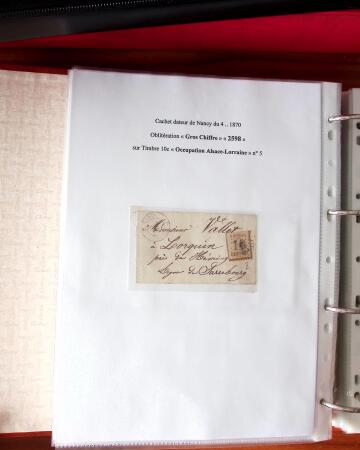 Cachet dateur de Nancy du 4 .. 1870
Oblitération « Gros Chiffre » « 2598 »
sur Timbre 10c « Occupation Alsace-Lorraine » n° 5
Monsieur Vallet
à Lorquin
près de
Ligne de Sarrebourg
10